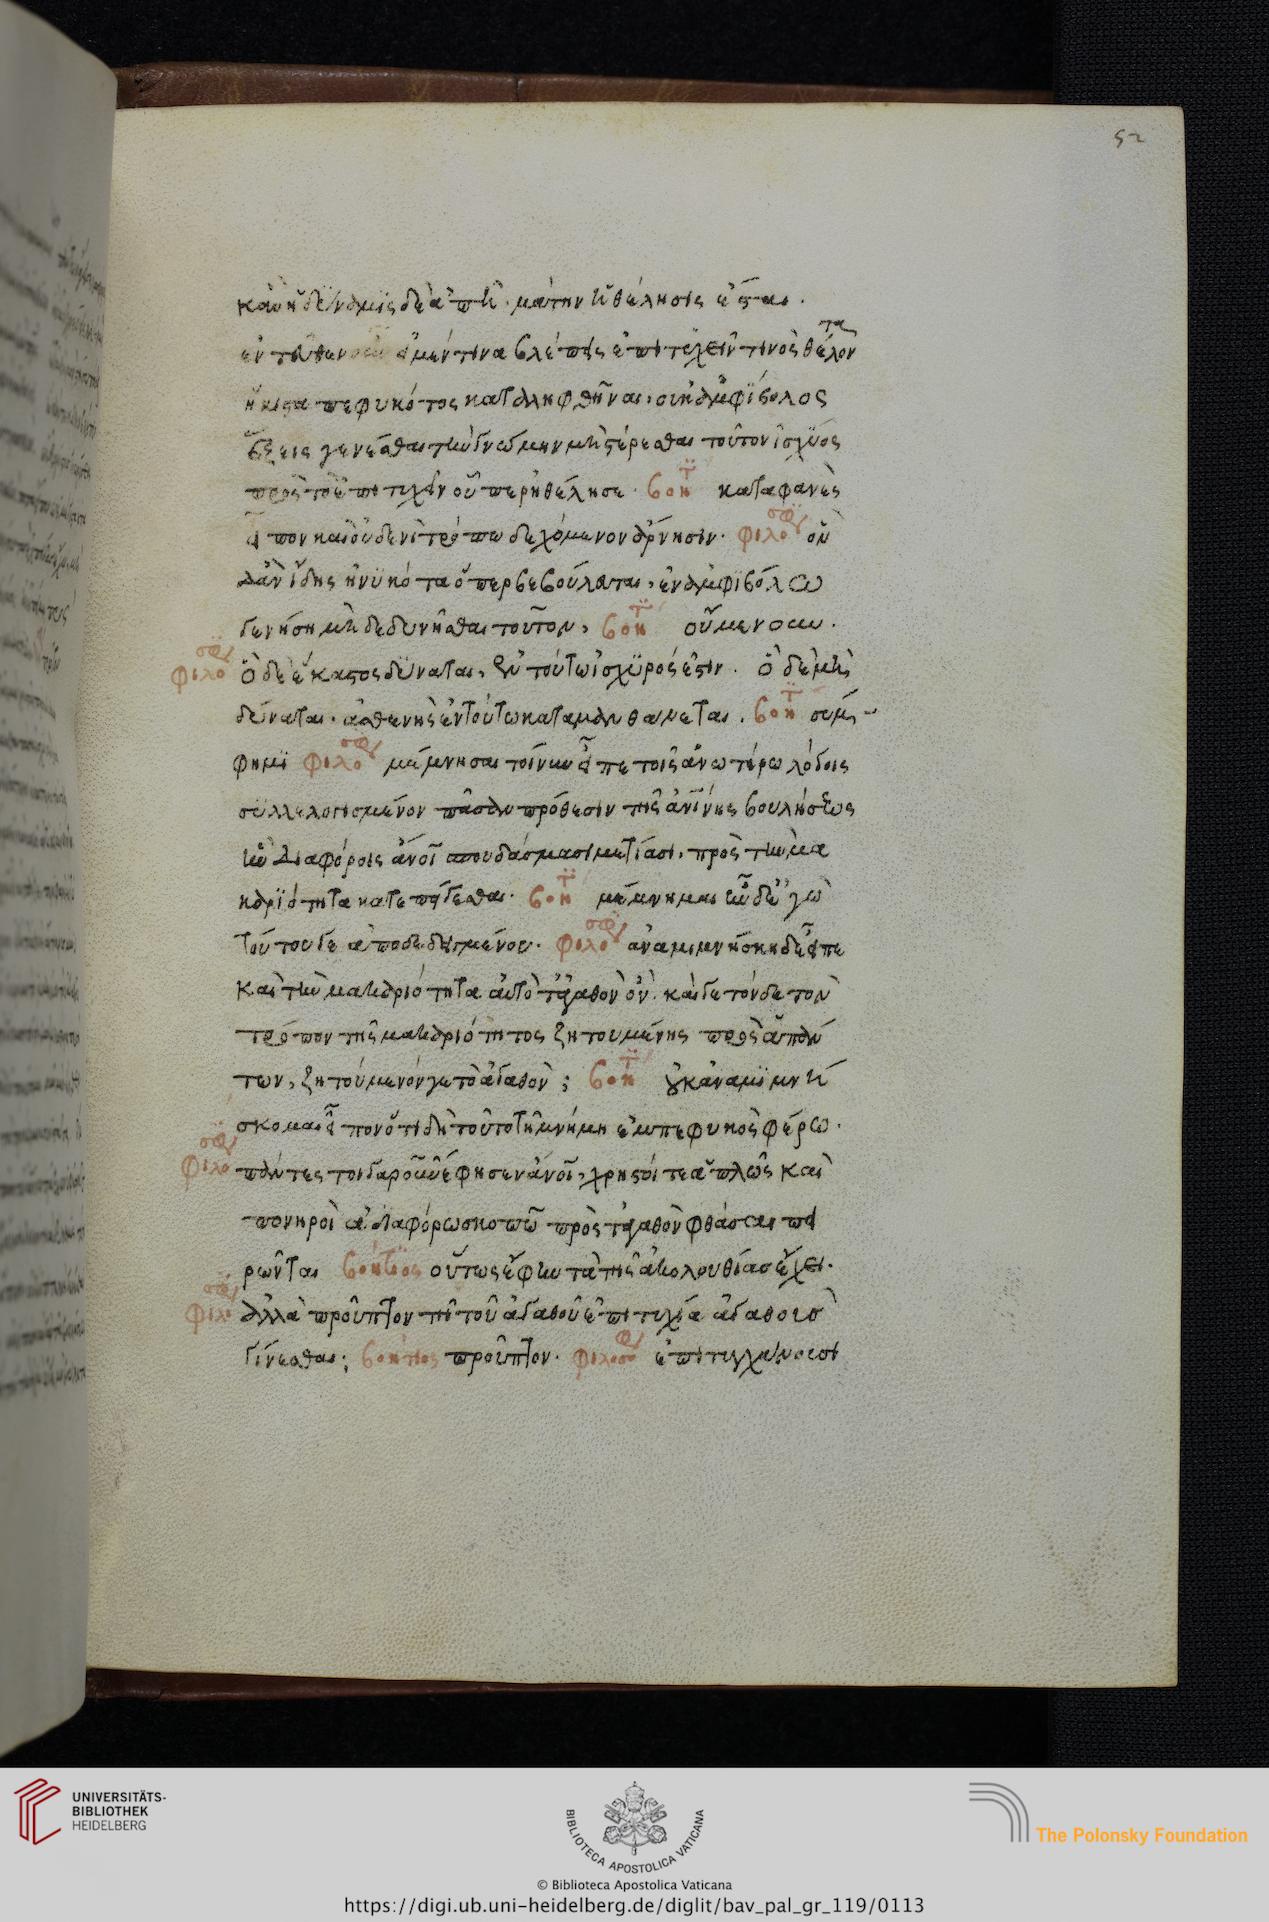 52
κἂν ἡ δύναμις δὲ ἀπῇ· μάτην ἡ θέλησις ἔσται.
ἐντεῦθεν εἰ μέν τινα βλέπεις ἐπιτυχεῖν τινὸς θέλοντα
ἥκιστα πεφυκότος καταληφθῆναι, οὐκ ἀμφίβολος
ἕξεις γενέσθαι τὴν γνώμην μὴ στέρεσθαι τοῦτον ἰσχύος
πρὸς τὸ ἐπιτυχεῖν οὗπερ ἠθέλησε. βοητ καταφανὲς
εἶπον καὶ οὐδενὶ τρόπω δεχόμενον ἄρνησιν. φιλοσοφ ὃν
δ' ἂν ἴδης ἠνυκότα ὅπερ βεβούλαται, ἐν ἀμφιβόλω
γενήση μὴ δεδυνῆσθαι τοῦτον; βοητ οὔμενουν.
φιλοσοφ ὃ δὲ ἕκαστος δύναται, ἐν τούτω ἰσχυρός ἐστιν. ὃ δὲ μὴ
δύναται, ἀσθενὴς ἐν τούτω καταμανθάνεται. βοητ σύμ-
φημι φιλοσοφ μέμνησαι τοίνυν εἶπε τοῖς ἀνωτέρω λόγοις
συλλελογισμένον πᾶσαν πρόθεσιν τῆς ἀνίνης βουλήσεως
ἣν διαφόροις ἄνοι σπουδάσμασι μετίασι, πρὸς τὴν μα
καριότητα κατεπείγεσθαι. βοητ μέμνημαι ὧδε ἐγὼ
τούτου γε ἀποδεδειγμένου. φιλοσοφ ἀναμιμνήσκη δὲ εἶπε
καὶ τὴν μακαριότητα αὐτὸ τἀγαθὸν ὂν. καί γε τόνδε τὸν
τρόπον τῆς μακαριότητος ζητουμένης πρὸς ἁπάν
των, ζητούμενόν γε τὸ ἀγαθὸν; βοητ οὐκ ἀναμιμνή
σκομαι εἶπον ὅτι δὴ τοῦτο τῆ μνήμη ἐμπεφυκὸς φέρω.
φιλοσοφ πάντες τοιγαροῦν ἔφησεν ἄνοι, χρηστοί τε ἁπλῶς καὶ
πονηροὶ ἀδιαφόρω σκοπῶ πρὸς τἀγαθὸν φθάσαι πει
ρῶνται βοήτιος οὕτως ἔφην τὰ τῆς ἀκολουθίας ἔχει.
φιλοσοφ ἀλλὰ προῦπτον τῆ τοῦ ἀγαθοῦ ἐπιτυχία ἀγαθοὺς
γίνεσθαι; βοήτιος προῦπτον. φιλοσοφ ἐπιτυγχάνουσι
UNIVERSITÄTS-
BIBLIOTHEK
HEIDELBERG
BIBLIOTECA APOSTOLICA VATICANA
© Biblioteca Apostolica Vaticana
The Polonsky Foundation
https://digi.ub.uni-heidelberg.de/diglit/bav_pal_gr_119/0113